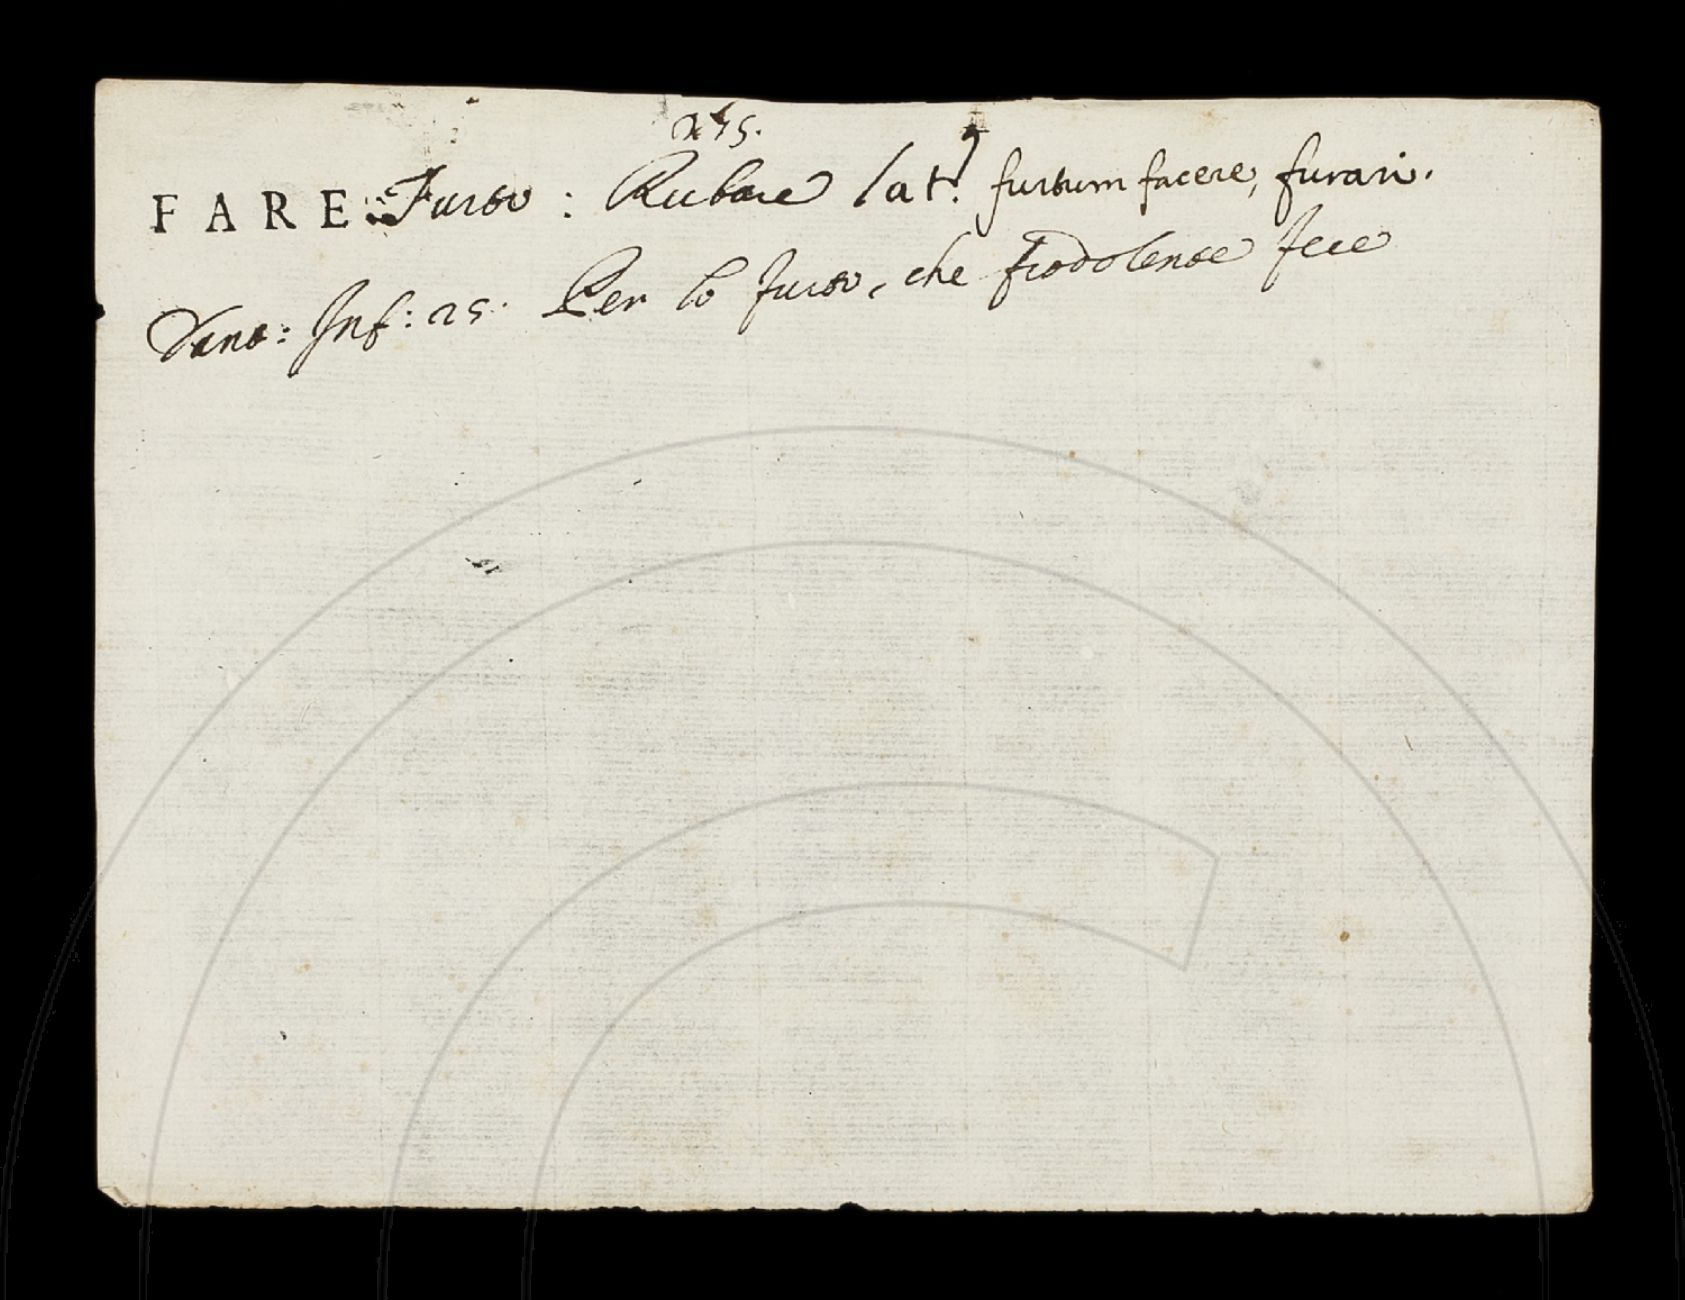 275.
FARE Furto : Rubare lat. furtum facere, furari.
Dant: Inf: 25. Per lo furto, che frodolente fece